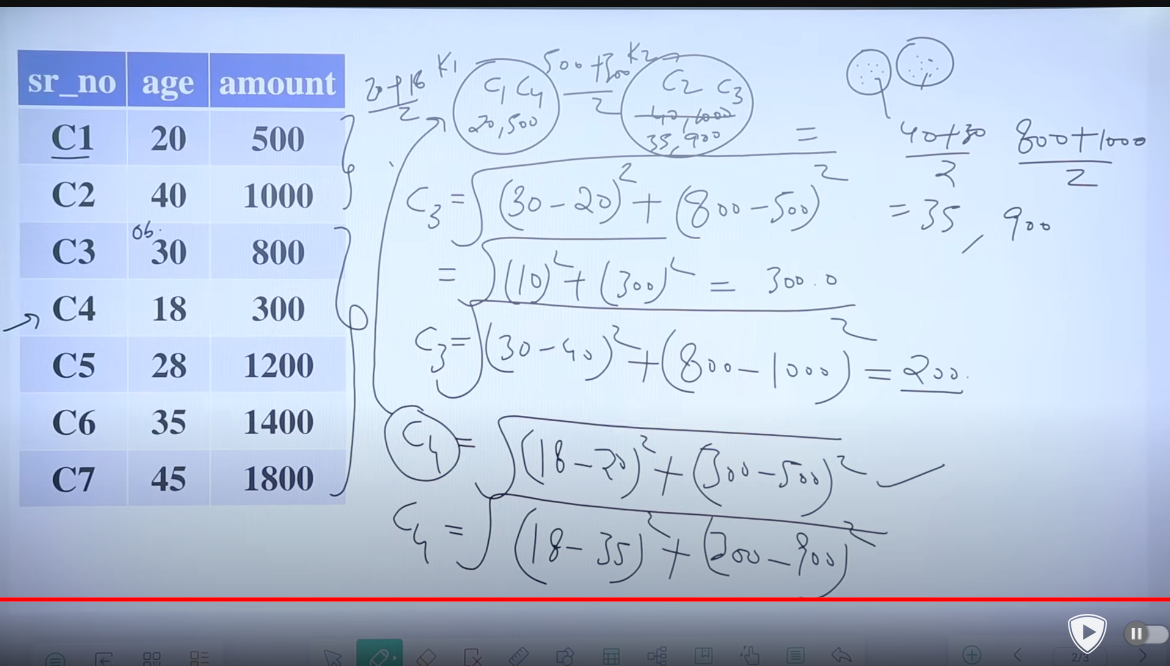 sr_no age amount
C1 20 500
C2 40 1000
C3 30 800
C4 18 300
C5 28 1200
C6 35 1400
C7 45 1800
ob.
K1
C1 C4
20,500
500+300
2
K2
C2 C3
40,1000
35,900
=
40+30
2
800+1000
2
= 35, 900
C3 = √(30-20)² + (800-500)²
= √(10)² + (300)² = 300.0
C3 = √(30-40)² + (800-1000)² = 200.
C4 = √(18-20)² + (300-500)² ✓
C4 = √(18-35)² + (200-900)²
2/3